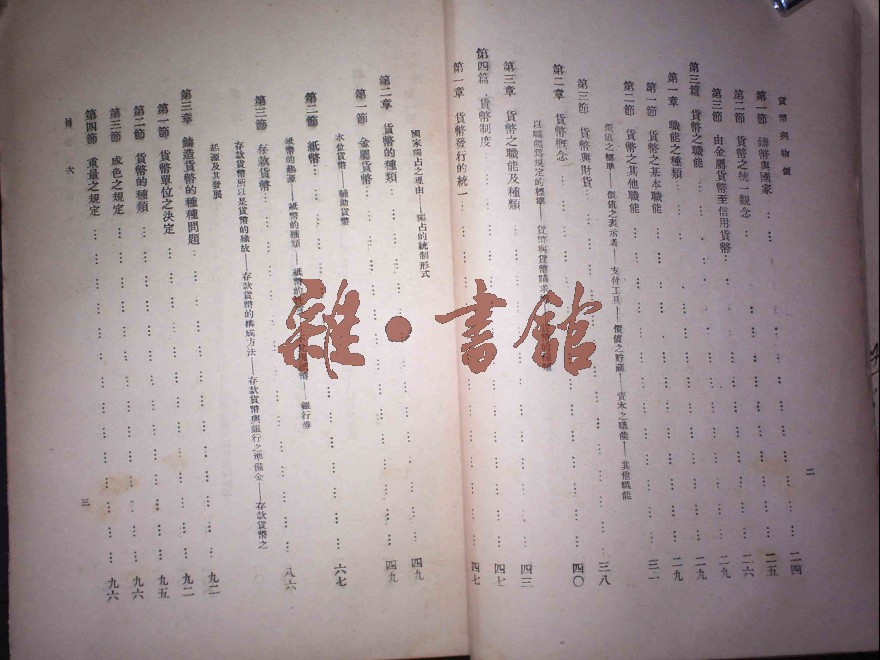 貨幣與物價
第一節 鑄幣與國家 二四
第二節 貨幣之統一觀念 二五
第三節 由金屬貨幣至信用貨幣 二六
第三篇 貨幣之職能 二九
第一章 職能之種類 二九
第一節 貨幣之基本職能 二九
第二節 貨幣之其他職能 三一
價值之標準——價值之表示者——支付工具——價值之貯藏——資本之職能——其他職能
第三節 貨幣與財貨 三八
第二章 貨幣概念 四〇
以職能為規定的標準——貨幣與貨幣
第三章 貨幣之職能及種類 四三
第四篇 貨幣制度 四七
第一章 貨幣發行的統一 四七
二
國家獨占之理由——獨占的統制形式 四九
第二章 貨幣的種類
第一節 金屬貨幣 四九
本位貨幣——輔助貨幣
第二節 紙幣 六七
紙幣的起源——紙幣的種類——紙幣的 ——銀行券
第三節 存款貨幣 八六
存款貨幣所以是貨幣的緣故——存款貨幣的構成方法——存款貨幣與銀行之準備金——存款貨幣之
起源及其發展
第三章 鑄造貨幣的種種問題 九二
第一節 貨幣單位之決定 九二
第二節 貨幣的種類 九五
第三節 成色之規定 九六
第四節 重量之規定 九六
目次
三
雜·書館